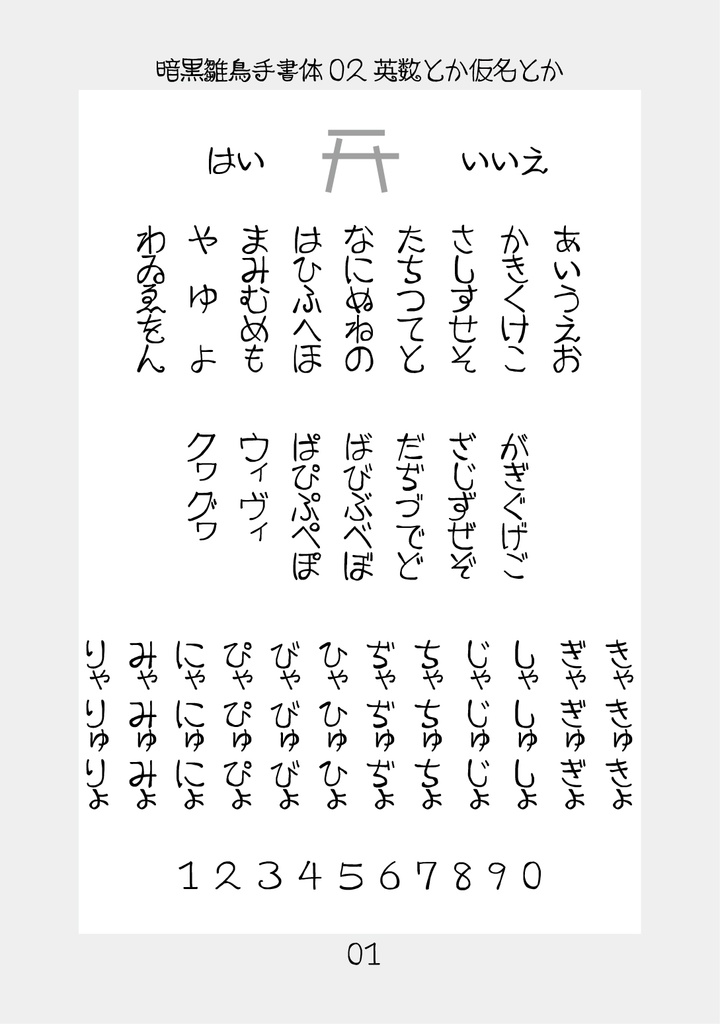 暗黒雛鳥手書体02 英数とか仮名とか
はい
いいえ
あいうえお
かきくけこ
さしすせそ
たちつてと
なにぬねの
はひふへほ
まみむめも
や ゆ よ
わゐゑをん
がぎぐげご
ざじずぜぞ
だぢづでど
ばびぶべぼ
ぱぴぷぺぽ
ウィヴィ
クヮグヮ
きゃきゅきょ
ぎゃぎゅぎょ
しゃしゅしょ
じゃじゅじょ
ちゃちゅちょ
ぢゃぢゅぢょ
ひゃひゅひょ
びゃびゅびょ
ぴゃぴゅぴょ
にゃにゅにょ
みゃみゅみょ
りゃりゅりょ
1234567890
01